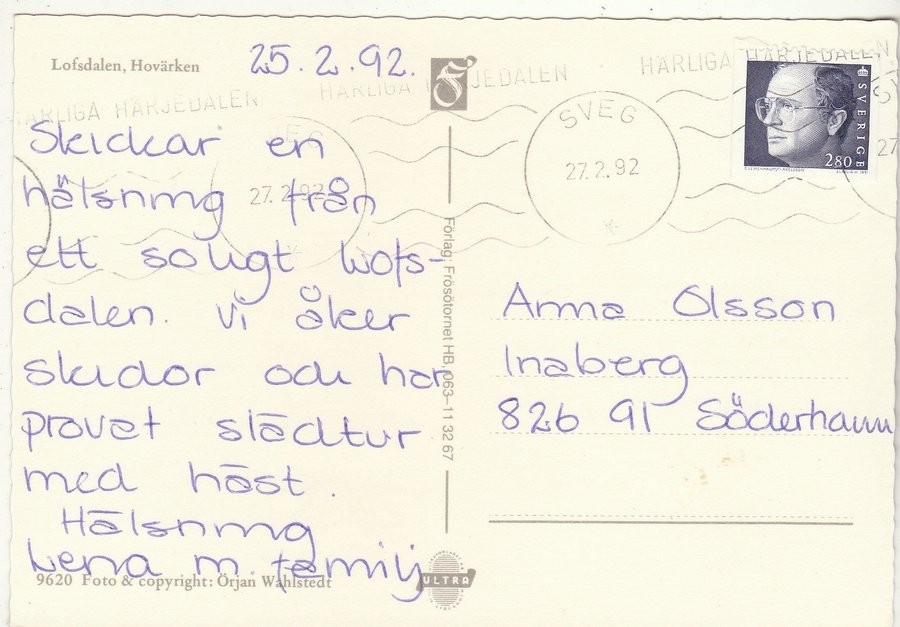 Lofsdalen, Hovärken
25.2.92.
HÄRLIGA HÄRJEDALEN
HÄRLIGA HÄRJEDALEN
HÄRLIGA HÄRJEDALEN
SVEG
27.2.92
SVERIGE
2.80
27.2.92
27
Skickar en
hälsning från
ett soligt Lofs-
dalen. Vi åker
skidor och har
provat slädtur
med häst.
Hälsning
Lena m. familj
Förlag: Frösötornet HB, 063-11 32 67
Anna Olsson
Inaberg
826 91 Söderhamn
9620 Foto & copyright: Örjan Wahlstedt
ULTRA